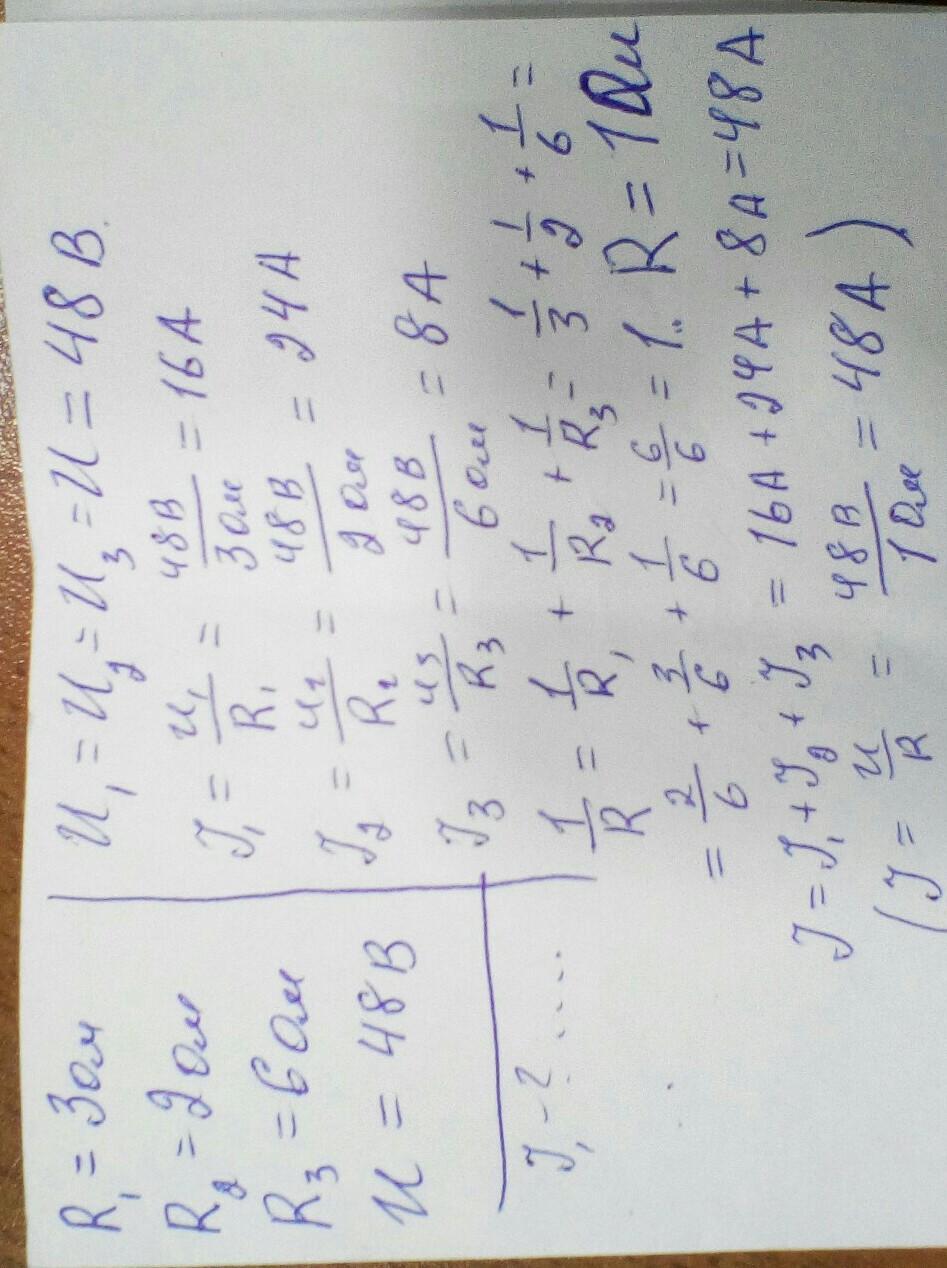 R₁ = 3 Ом
R₂ = 2 Ом
R₃ = 6 Ом
U = 48 В
I₁ - ? ....
U₁ = U₂ = U₃ = U = 48 В.
I₁ = U₁/R₁ = 48 В/3 Ом = 16 А
I₂ = U₂/R₂ = 48 В/2 Ом = 24 А
I₃ = U₃/R₃ = 48 В/6 Ом = 8 А
1/R = 1/R₁ + 1/R₂ + 1/R₃ = 1/3 + 1/2 + 1/6 =
= 2/6 + 3/6 + 1/6 = 6/6 = 1. R = 1 Ом
I = I₁ + I₂ + I₃ = 16 А + 24 А + 8 А = 48 А
(I = U/R = 48 В/1 Ом = 48 А)